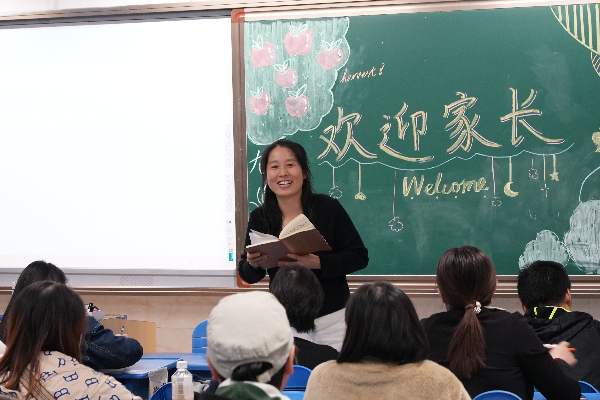 harvest!
欢迎家长
Welcome